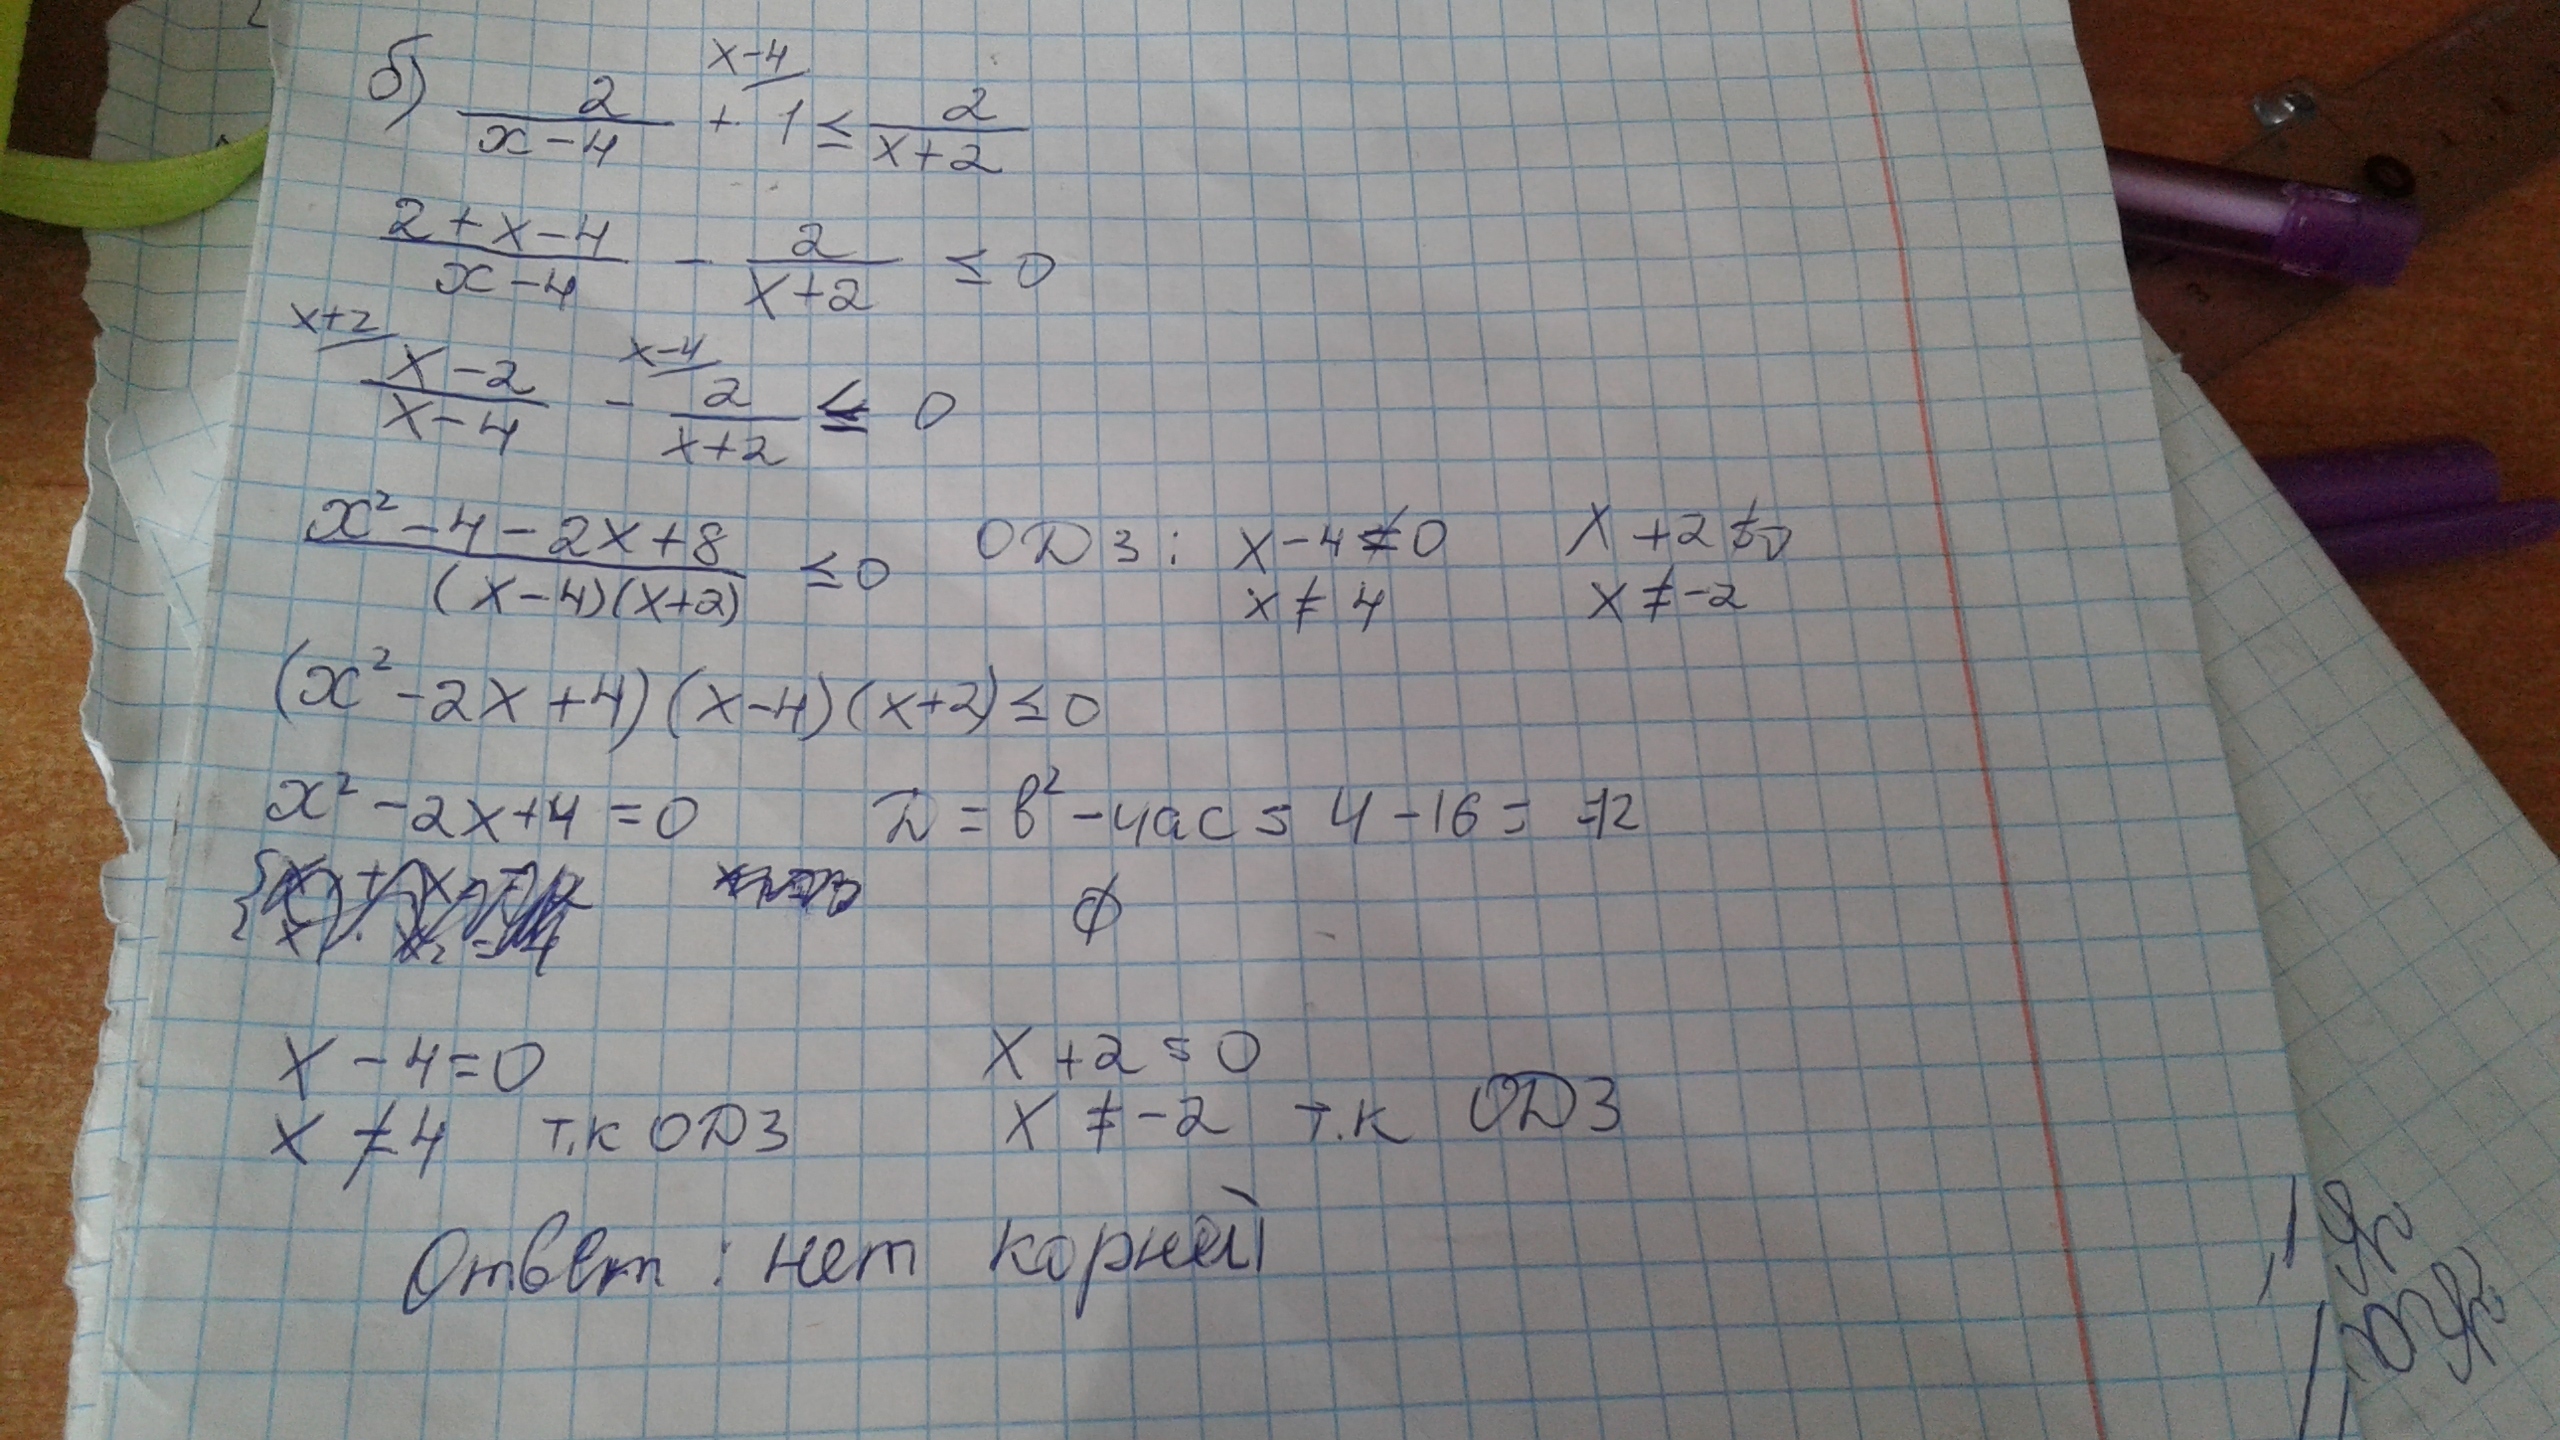 x-4
б) 2/(x-4) + 1 ≤ 2/(x+2)
(2+x-4)/(x-4) - 2/(x+2) ≤ 0
x+2 x-4
(x-2)/(x-4) - 2/(x+2) ≤ 0
(x²-4-2x+8)/((x-4)(x+2)) ≤ 0 ОДЗ: x-4≠0 x+2≠0
x≠4 x≠-2
(x²-2x+4)(x-4)(x+2)≤0
x²-2x+4=0 Д=b²-4ac=4-16=-12
∅
x-4=0 x+2=0
x≠4 т.к ОДЗ x≠-2 т.к ОДЗ
Ответ: нет корней